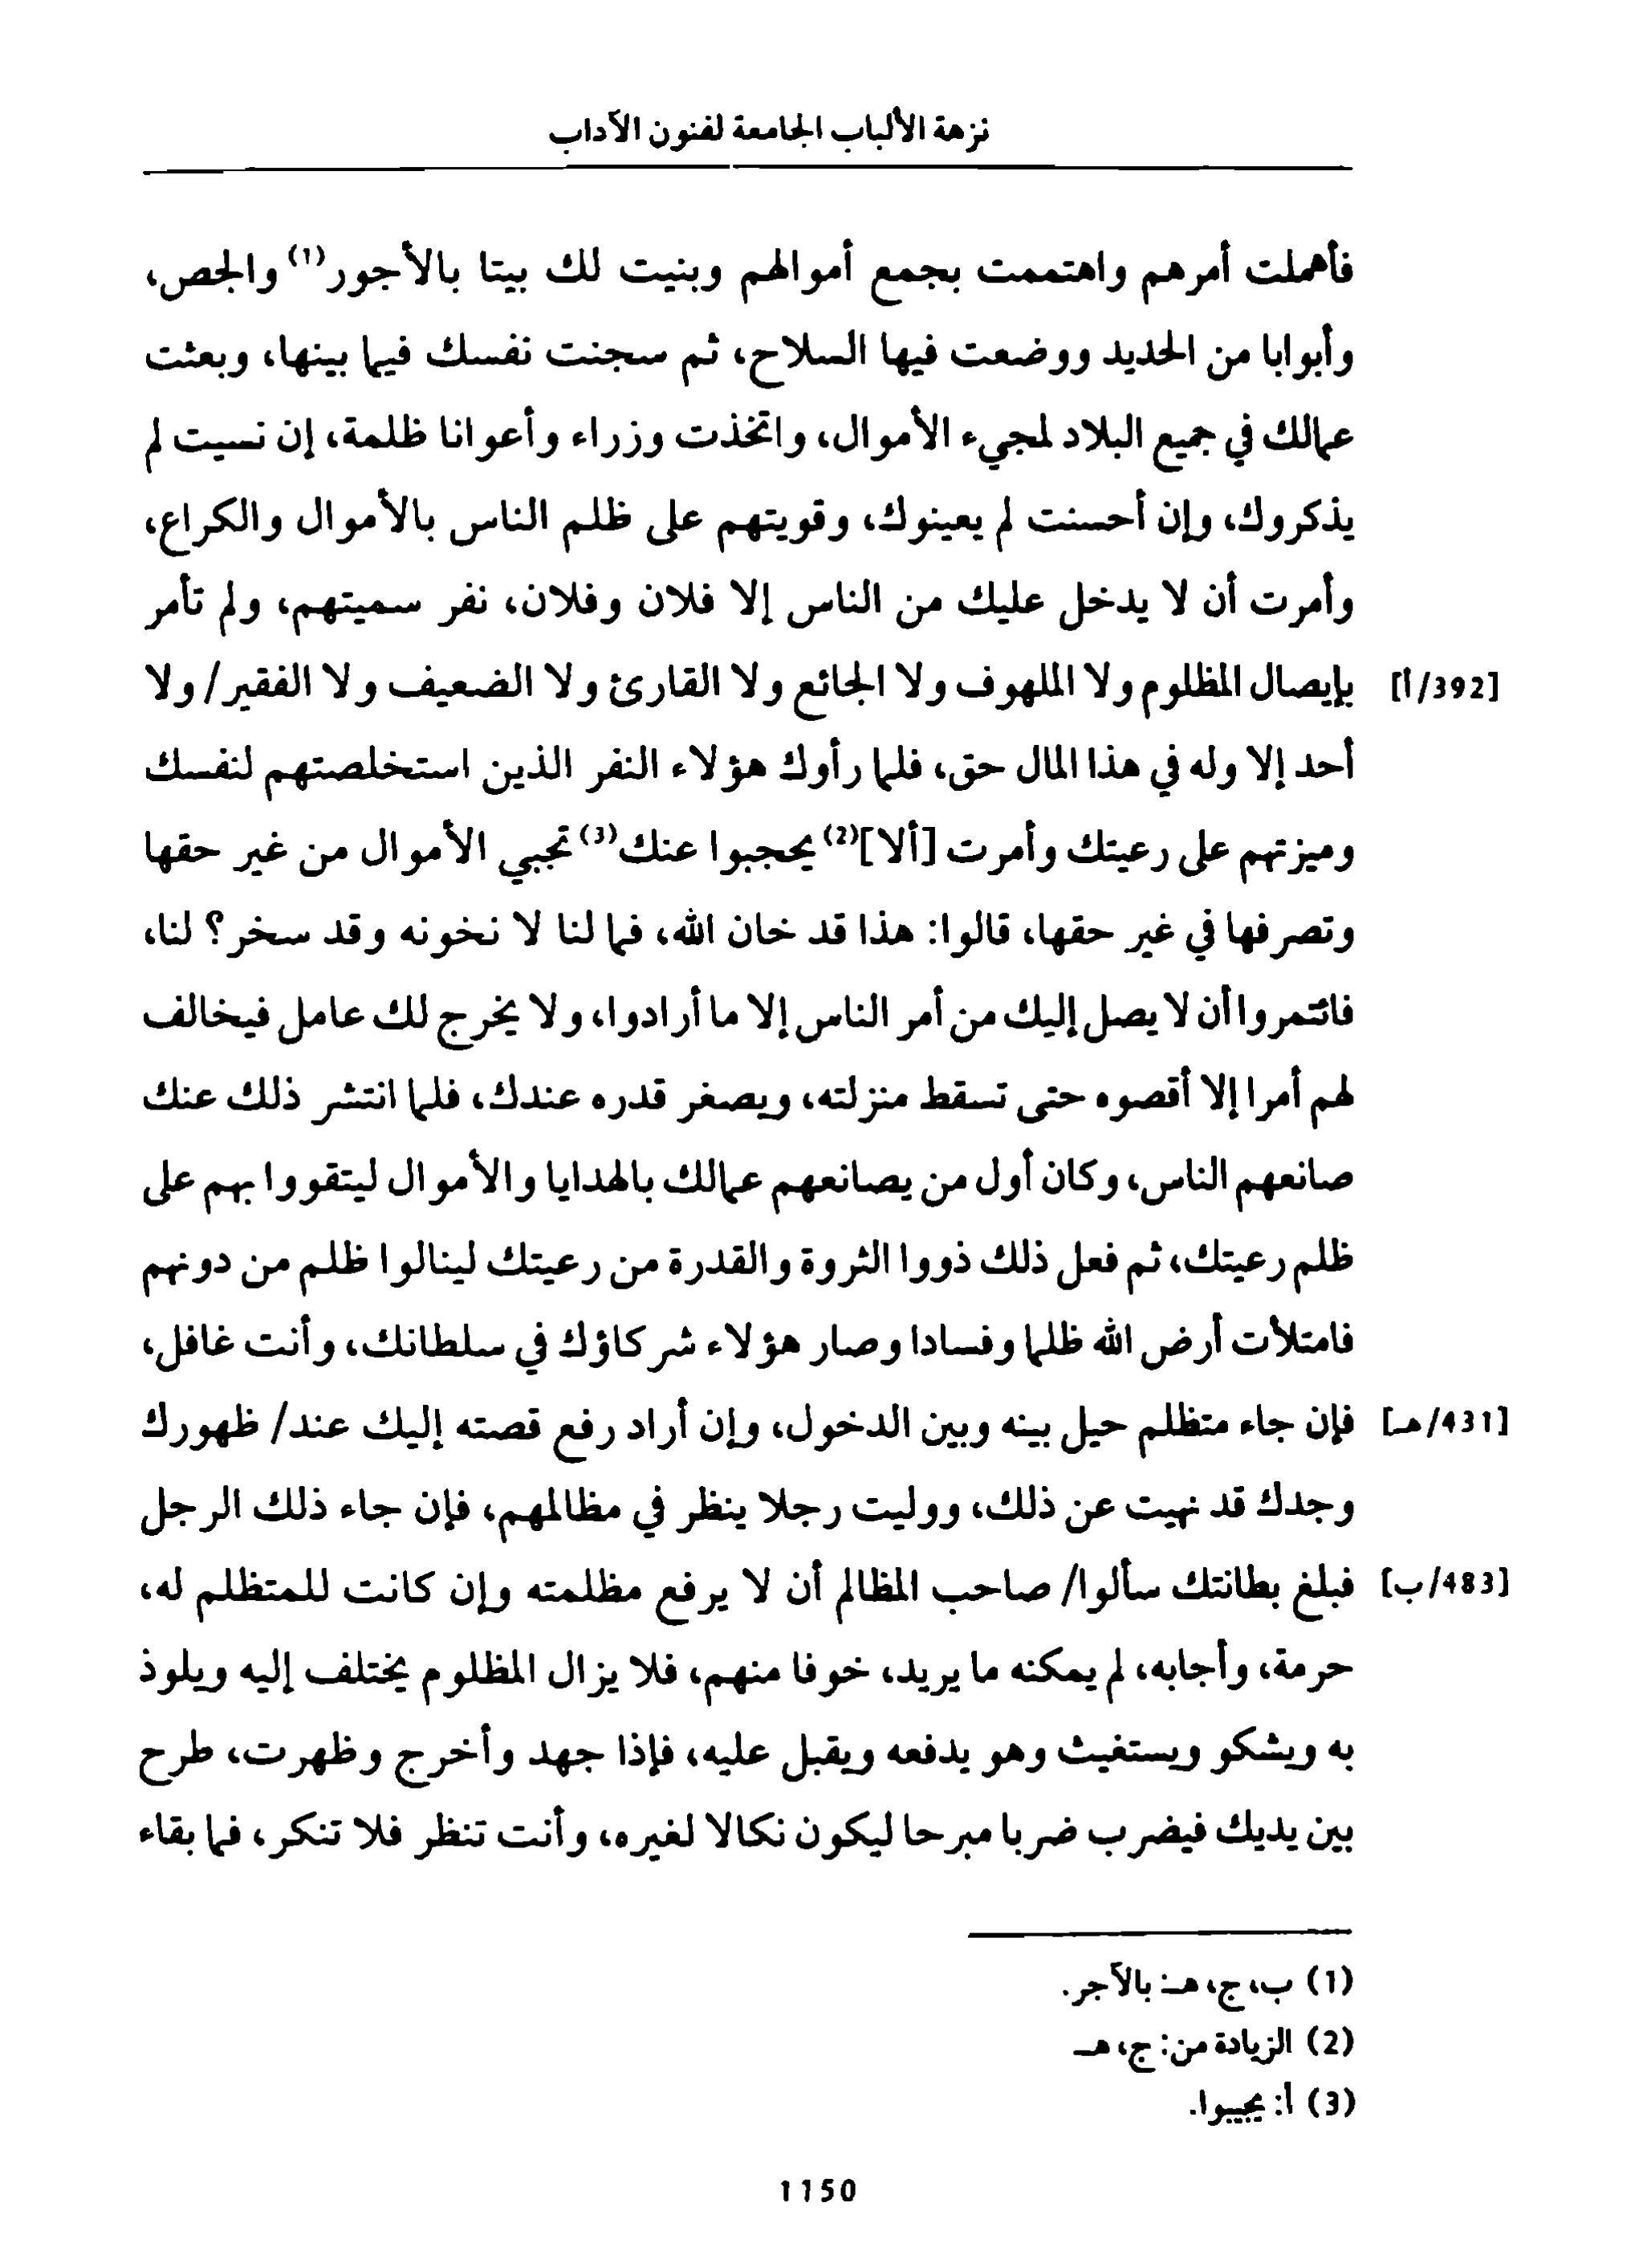 نزهة الألباب الجامعة لفنون الآداب
فأهملت أمرهم واهتممت بجمع أموالهم وبنيت لك بيتا بالأجور(١) والجص،
وأبوابا من الحديد ووضعت فيها السلاح، ثم سجنت نفسك فيما بينها، وبعثت
عمالك في جميع البلاد لمجيء الأموال، واتخذت وزراء وأعوانا ظلمة، إن نسيت لم
يذكروك، وإن أحسنت لم يعينوك، وقويتهم على ظلم الناس بالأموال والكراع،
وأمرت أن لا يدخل عليك من الناس إلا فلان وفلان، نفر سميتهم، ولم تأمر
بإيصال المظلوم ولا الملهوف ولا الجائع ولا القارئ ولا الضعيف ولا الفقير/ ولا [392/أ]
أحد إلا وله في هذا المال حق، فلما رأوك هؤلاء النفر الذين استخلصتهم لنفسك
وميزتهم على رعيتك وأمرت [ألا](2) يحجبوا عنك(3) تجبي الأموال من غير حقها
وتصرفها في غير حقها، قالوا: هذا قد خان الله، فما لنا لا نخونه وقد سخر؟ لنا،
فائتمروا أن لا يصل إليك من أمر الناس إلا ما أرادوا، ولا يخرج لك عامل فيخالف
لهم أمرا إلا أقصوه حتى تسقط منزلته، ويصغر قدره عندك، فلما انتشر ذلك عنك
صانعهم الناس، وكان أول من يصانعهم عمالك بالهدايا والأموال ليتقووا بهم على
ظلم رعيتك، ثم فعل ذلك ذووا الثروة والقدرة من رعيتك لينالوا ظلم من دونهم
فامتلأت أرض الله ظلما وفسادا وصار هؤلاء شركاؤك في سلطانك، وأنت غافل،
فإن جاء متظلم حيل بينه وبين الدخول، وإن أراد رفع قصته إليك عند/ ظهورك [431/هـ]
وجدك قد نهيت عن ذلك، ووليت رجلا ينظر في مظالمهم، فإن جاء ذلك الرجل
فبلغ بطانتك سألوا/ صاحب المظالم أن لا يرفع مظلمته وإن كانت للمتظلم له، [483/ب]
حرمة، وأجابه، لم يمكنه ما يريد، خوفا منهم، فلا يزال المظلوم يختلف إليه ويلوذ
به ويشكو ويستغيث وهو يدفعه ويقبل عليه، فإذا جهد وأخرج وظهرت، طرح
بين يديك فيضرب ضربا مبرحا ليكون نكالا لغيره، وأنت تنظر فلا تنكر، فما بقاء
(1) ب، ج، هـ: بالآجر.
(2) الزيادة من: ج، هـ
(3) أ: يجيبوا.
1150